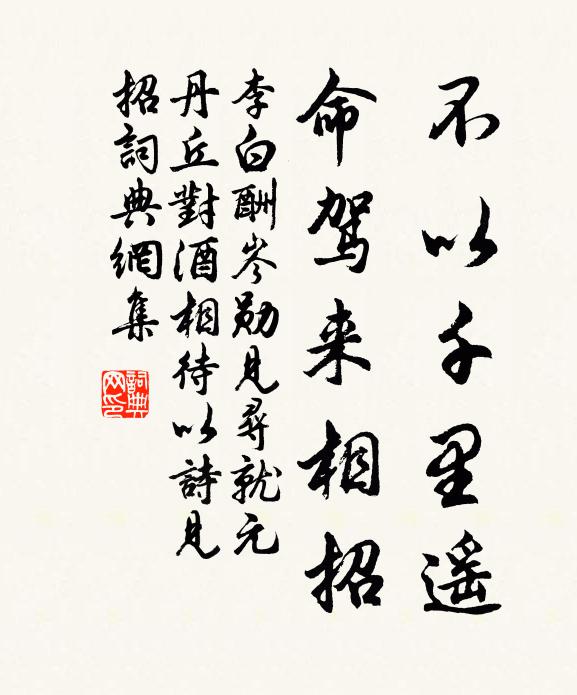 不以千里遥
命驾来相招
李白酬岑勋見尋就元
丹丘對酒相待以詩見
招詞典網集
詞典网印